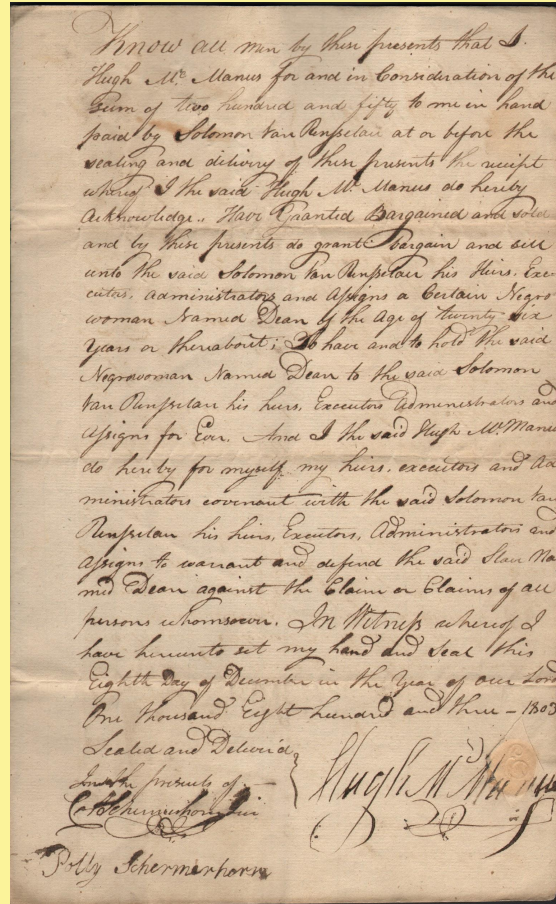 Know all men by these presents that I.
Hugh Mc. Manus for and in Consideration of the
Sum of two hundred and fifty to me in hand
paid by Solomon Van Renſselau at or before the
sealing and delivery of these presents the receipt
whereof I the said Hugh Mc. Manus do hereby
Acknowledge.. Have Granted Bargained and sold
and by these presents do grant Bargain and sell
unto the said Solomon Van Renſselau his Heirs. Exe-
cutors. Administrators and Aſsigns a Certain Negro
woman Named Dean of the Age of twenty six
Years or thereabout; To have and to hold the said
Negrowoman Named Dean to the said Solomon
Van Renſselau his heirs. Executors Administrators and
Aſsigns for Ever. And I the said Hugh Mc. Manus
do hereby for myself my heirs. executors and Ad
ministrators covenant with the said Solomon Van
Renſselau his heirs, Executors, Administrators and
Aſsigns to warrant and defend the said Slave Na
med Dean against the Claim or Claims of all
persons whomsoever. In Witneſs whereof I
have hereunto set my hand and Seal this
Eighth Day of December in the Year of our Lord
One thousand Eight hundred and three – 1803
Sealed and Deliver'd
In the presents of
Hugh Mc Manus
Schermerhorn
Polly Schermerhorn